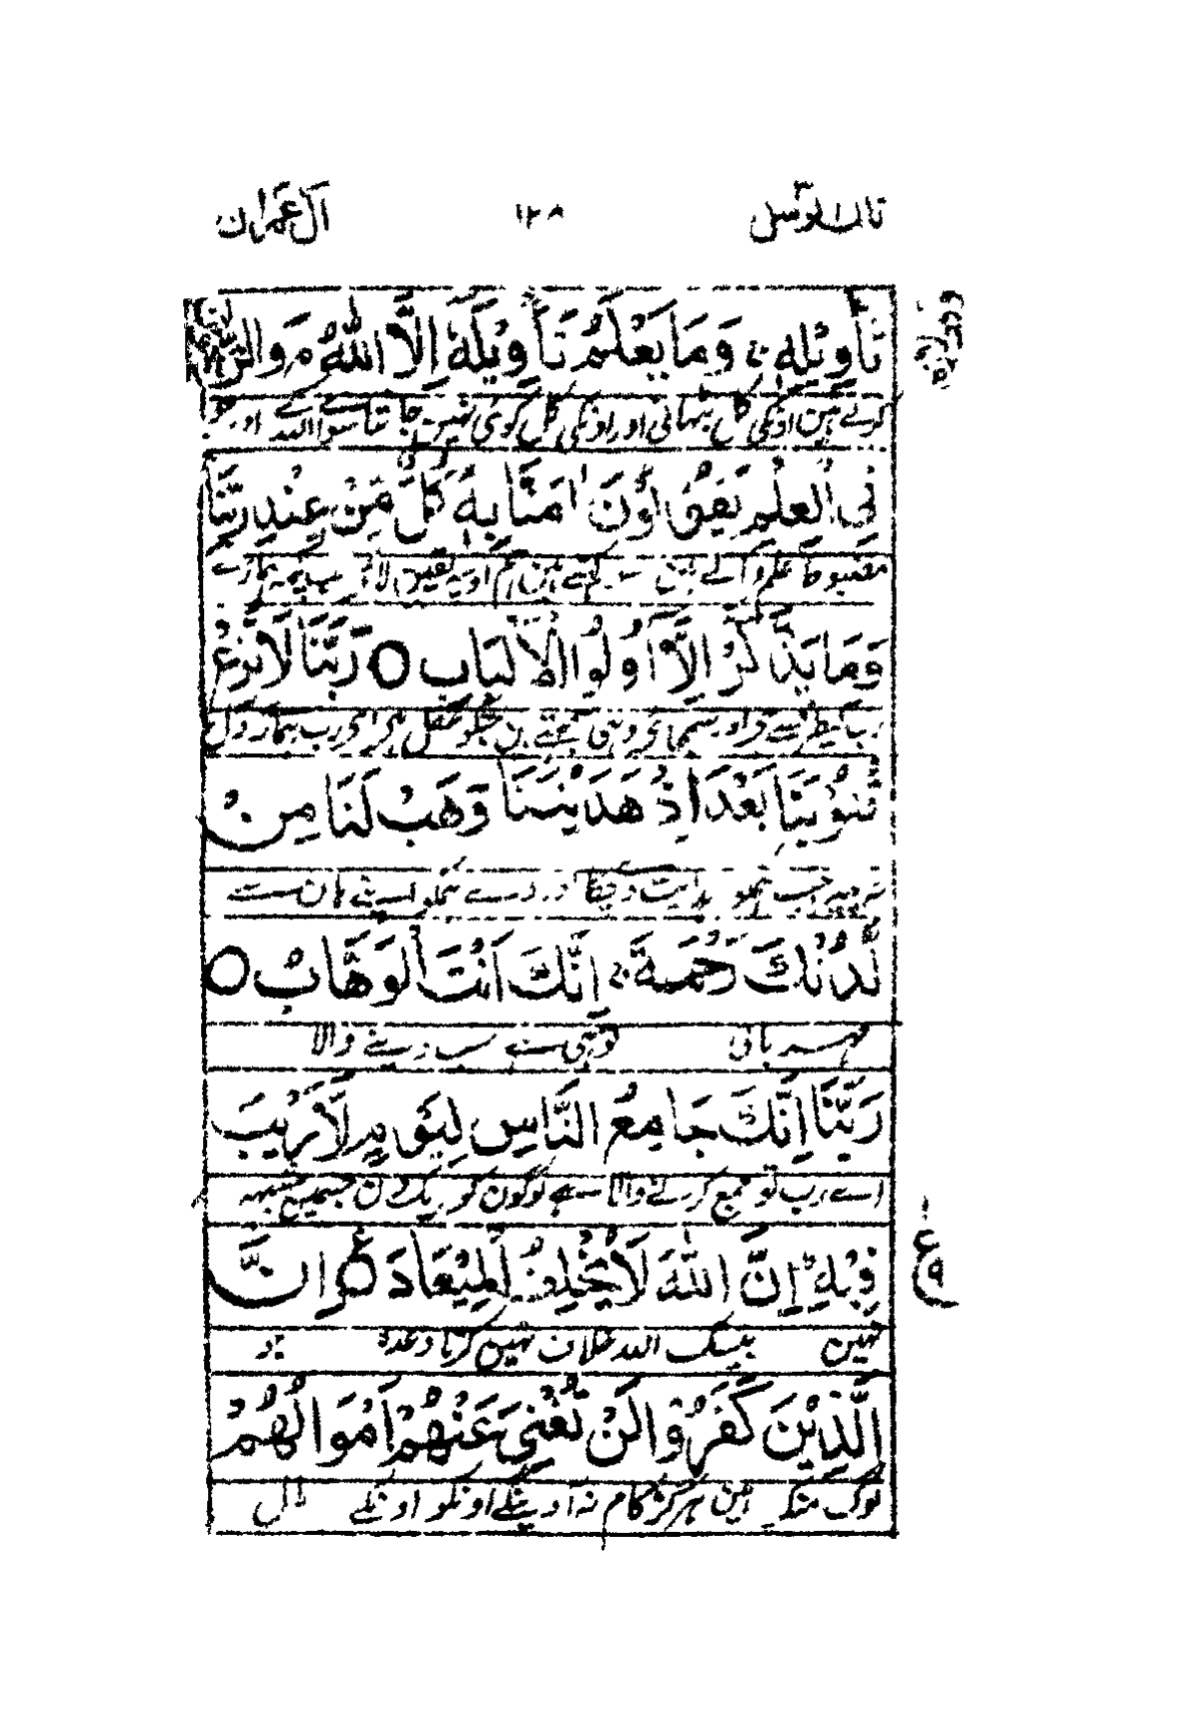 تلك الرسل ١٢٨ آل عمران
تَأْوِيْلِهٖ وَمَا يَعْلَمُ تَأْوِيْلَهٗ اِلَّا اللّٰهُ م وَالرّٰسِخُوْنَ
کرتے ہین اونکی کل بٹہانی اور اونکی کل کوئی نہین جانتا سوا اللہ کے اور جو
فِي الْعِلْمِ يَقُوْلُوْنَ اٰمَنَّا بِهٖ كُلٌّ مِّنْ عِنْدِ رَبِّنَا
مضبوط علم والے ہین سو کہتے ہین ہم اوسپہ یقین لائے سب کچہہ ہمارے
وَمَا يَذَّكَّرُ اِلَّا اُولُوا الْاَلْبَابِ ○ رَبَّنَا لَا تُزِغْ
رب کیطرف سے ہے اور سمجہائے وہی سمجہتے ہین جنکو عقل ہے اے رب ہمارے دل
قُلُوْبَنَا بَعْدَ اِذْ هَدَيْتَنَا وَهَبْ لَنَا مِنْ
نہ پہیر جب ہمکو ہدایت دے چکا اور دے ہمکو اپنے ہان سے
لَّدُنْكَ رَحْمَةً اِنَّكَ اَنْتَ الْوَهَّابُ ○
مہربانی توہی ہے سب دینے والا
رَبَّنَا اِنَّكَ جَامِعُ النَّاسِ لِيَوْمٍ لَّا رَيْبَ
اے رب تو جمع کرنے والا ہے لوگون کو ایک دن جسمین شبہہ
فِيْهِ اِنَّ اللّٰهَ لَا يُخْلِفُ الْمِيْعَادَ ○ اِنَّ
ع ٩
نہین بیشک اللہ خلاف نہین کرتا وعدہ جو
الَّذِيْنَ كَفَرُوْا لَنْ تُغْنِيَ عَنْهُمْ اَمْوَالُهُمْ
لوگ منکر ہین ہرگز کام نہ آوینگے اونکو اونکے مال